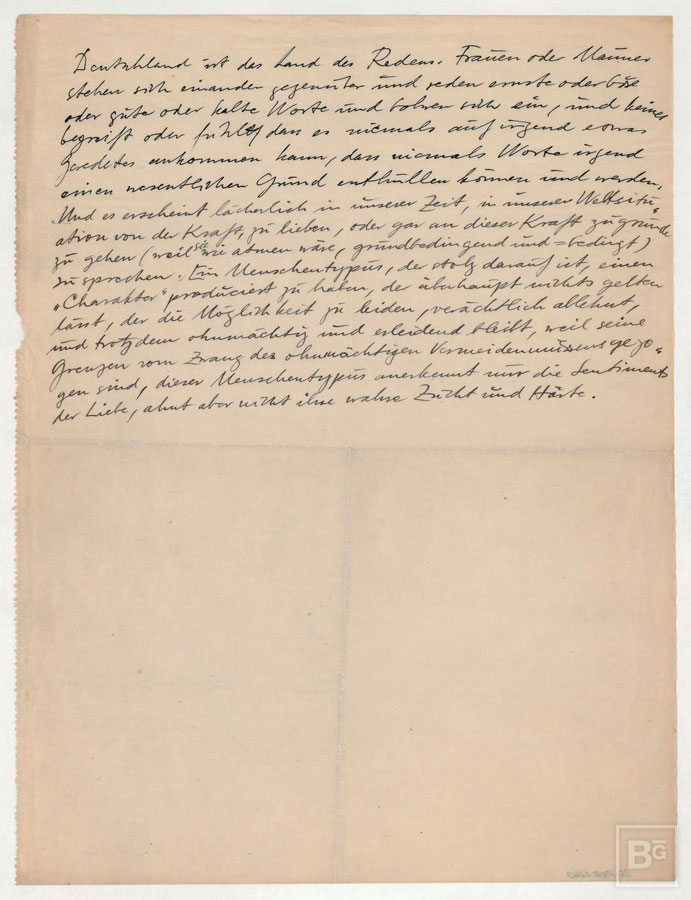 Deutschland ist das Land des Redens. Frauen oder Männer
stehen sich einander gegenüber und reden ernste oder böse
oder gute oder kalte Worte und bohren sich ein, und keiner
begreift oder fühlt dass es niemals auf irgend etwas
Geredetes ankommen kann, dass niemals Worte irgend
einen wesentlichen Grund enthüllen können und werden.
Und es erscheint lächerlich in unserer Zeit, in unserer Weltsitu=
ation von der Kraft, zu lieben, oder gar an dieser Kraft zugrunde
zu gehen (weil sie wie atmen wäre, grundbedingend und =bedingt)
zu sprechen. Ein Menschentypus, der stolz darauf ist, einen
„Charakter" produciert zu haben, der überhaupt nichts gelten
lässt, der die Möglichkeit zu leiden, verächtlich ablehnt,
und trotzdem ohnmächtig und erleidend bleibt, weil seine
Grenzen vom Zwang des ohnmächtigen Vermeidenmüssens gezo=
gen sind, dieser Menschentypus anerkennt nur die Sentiments
der Liebe, ahnt aber nicht ihre wahre Zucht und Härte.
BG